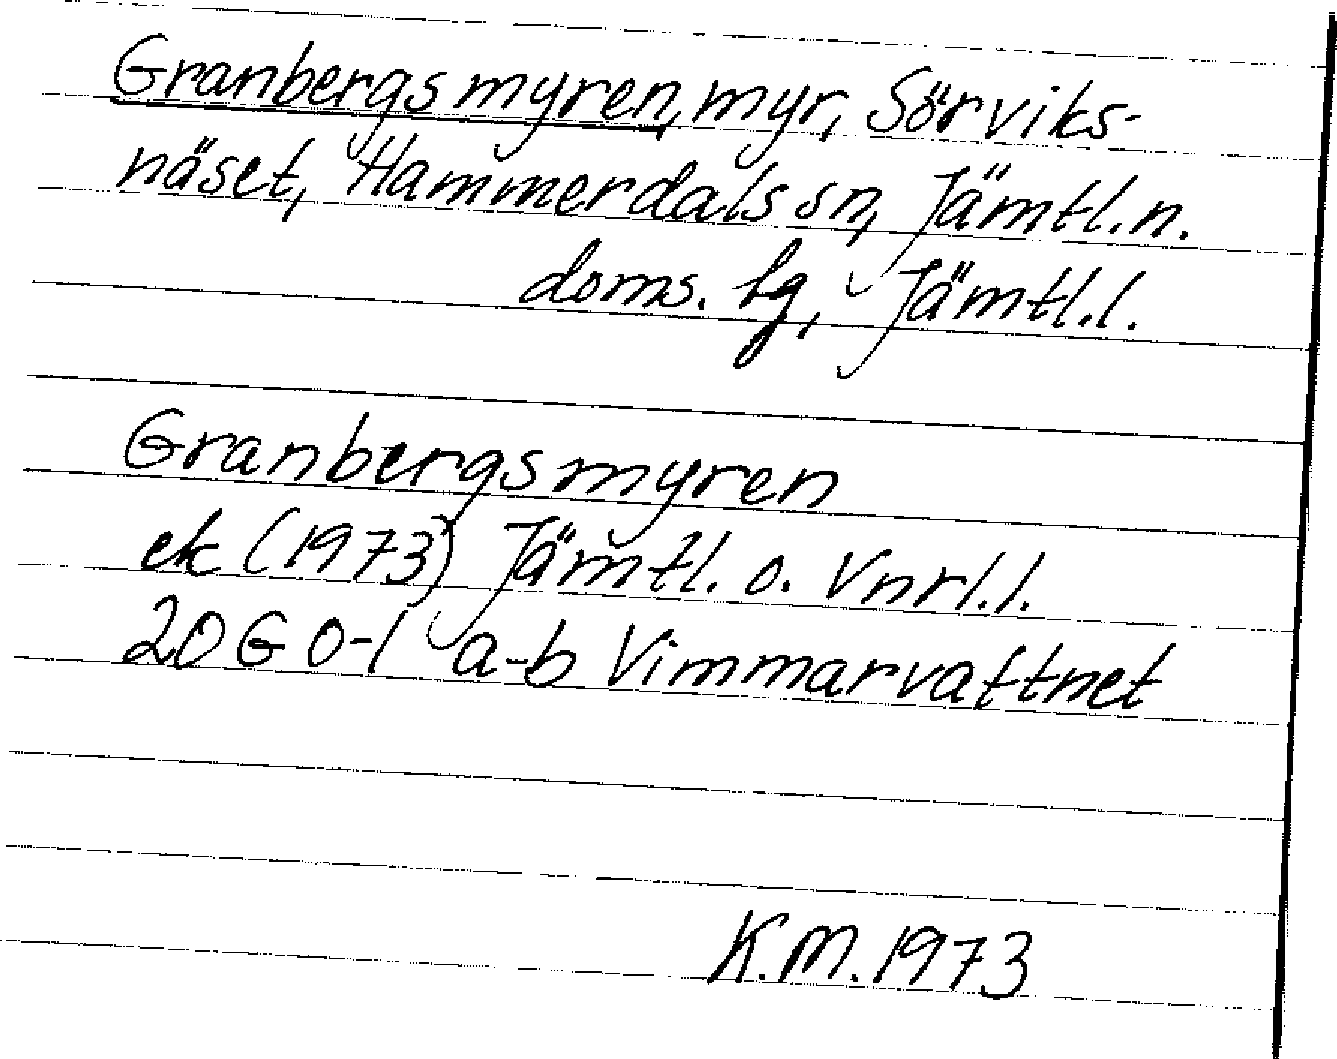 Granbergsmyren, myr, Sörviks-
näset, Hammerdals sn, Jämtl. n.
doms. hg, Jämtl. l.
Granbergsmyren
ek (1973) Jämtl. o. Vnrl. l.
20 G 0-1 a-b Vimmarvattnet
K.M. 1973